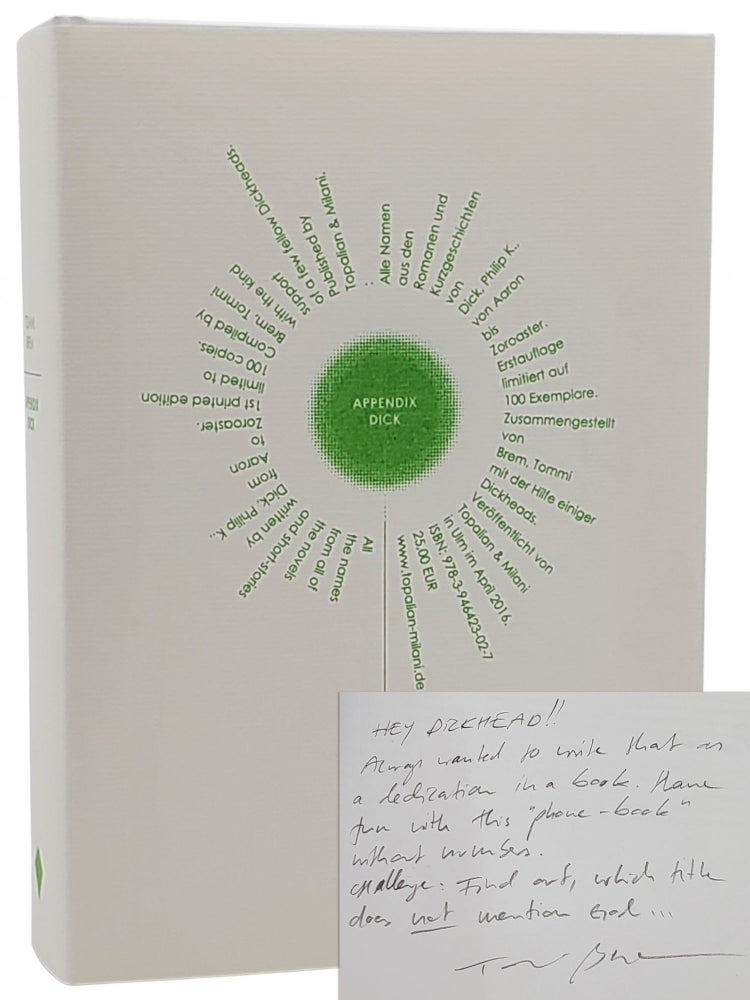 APPENDIX
DICK
Alle Namen
aus den
Romanen und
Kurzgeschichten
von
Dick, Philip K.,
von Aaron
bis
Zoroaster.
Erstauflage
limitiert auf
100 Exemplare.
Zusammengestellt
von
Brem, Tommi
mit der Hilfe einiger
Dickheads.
Veröffentlicht von
Topalian & Milani
in Ulm im April 2016.
ISBN: 978-3-946423-02-7
25.00 EUR
www.topalian-milani.de
All
the names
from all of
the novels
and short-stories
written by
Dick, Philip K.,
from
Aaron
to
Zoroaster.
1st printed edition
limited to
100 copies.
Compiled by
Brem, Tommi
with the kind
support
of a few fellow Dickheads.
Published by
Topalian & Milani.
:
TOMMI
BREM
APPENDIX
DICK
HEY DICKHEAD!!
Always wanted to write that as
a dedication in a book. Have
fun with this "phone-book"
without numbers.
Challenge: Find out, which title
does not mention God...